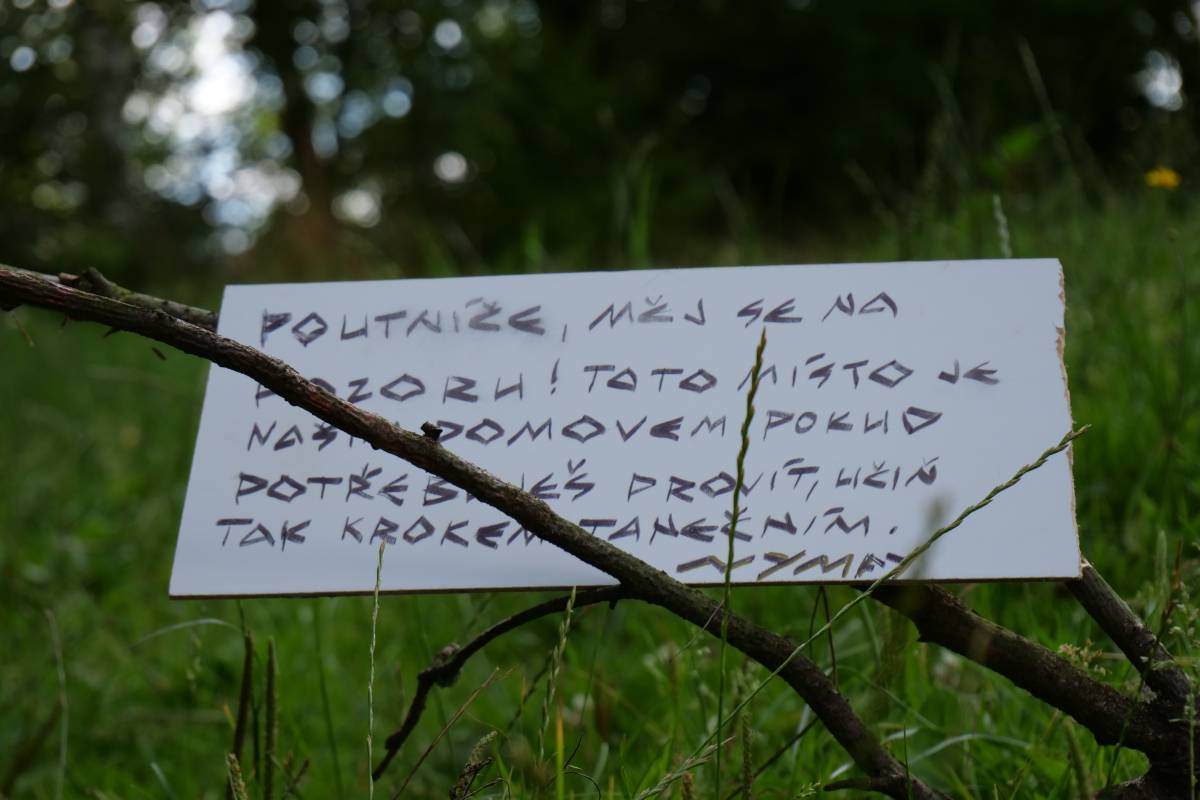 POUTNÍŽE, MĚJ SE NA
POZORU! TOTO MÍSTO JE
NAŠÍM DOMOVEM POKUD
POTŘEBUJEŠ PROJÍT, UČIŇ
TAK KROKEM TANEČNÍM.